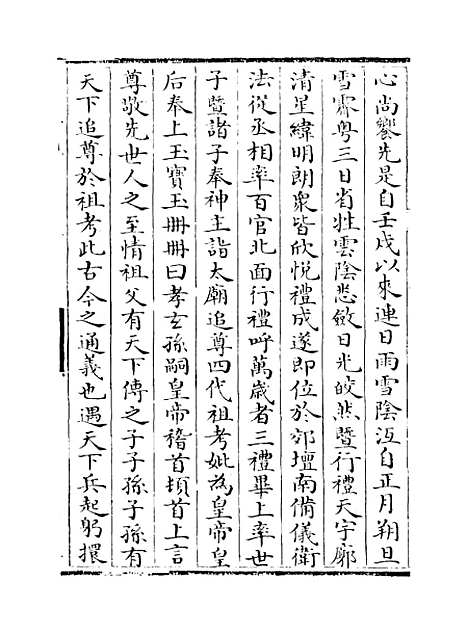 心尚饗先是自壬戌以來連日雨雪陰沍自正月朔旦
雪霽粤三日省牲雲陰悲斂日光皎然暨行禮天宇廓
清星緯明朗衆皆欣悦禮成遂即位於郊壇南備儀衛
法從丞相率百官北面行禮呼萬歲者三禮畢上率世
子暨諸子奉神主詣太廟追尊四代祖考妣為皇帝皇
后奉上玉寶玉冊冊曰孝玄孫嗣皇帝稽首頓首上言
尊敬先世人之至情祖父有天下傳之子子孫子孫有
天下追尊於祖考此古今之通義也遇天下兵起躬擐